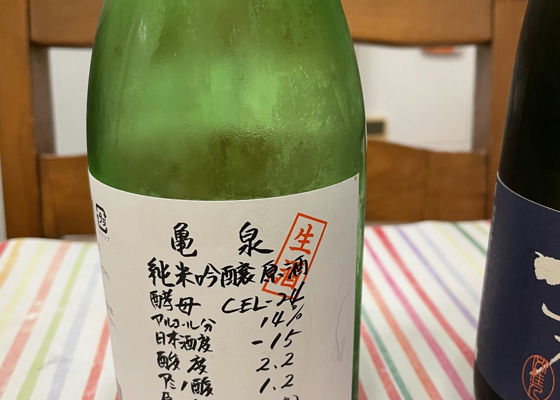 亀泉
生酒
純米吟醸原酒
酵母 CEL-24
アルコール分 14%
日本酒度 -15
酸度 2.2
アミノ酸 1.2